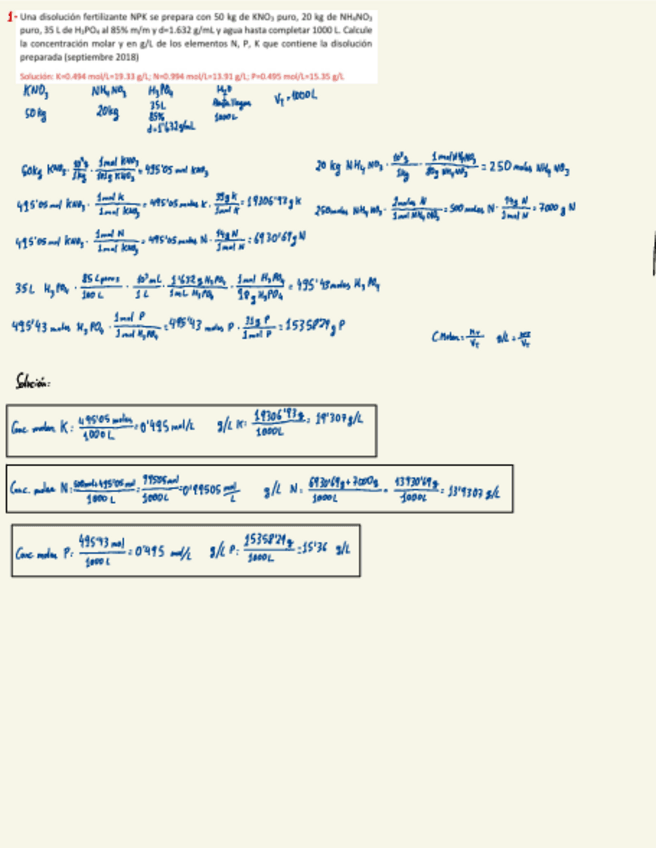 1- Una disolución fertilizante NPK se prepara con 50 kg de KNO₃ puro, 20 kg de NH₄NO₃
puro, 35 L de H₃PO₄ al 85% m/m y d=1.632 g/mL y agua hasta completar 1000 L. Calcule
la concentración molar y en g/L de los elementos N, P, K que contiene la disolución
preparada (septiembre 2018)
Solución: K=0.494 mol/L=19.33 g/L; N=0.994 mol/L=13.91 g/L; P=0.495 mol/L=15.35 g/L
KNO₃ NH₄NO₃ H₃PO₄ H₂O V_T=1000L
50kg 20kg 35L 1000L
85%
d=1'632g/mL
50kg KNO₃ · 10³g/1kg · 1mol KNO₃/101g KNO₃ = 495'05 mol KNO₃
20 kg NH₄NO₃ · 10³g/1kg · 1mol NH₄NO₃/80g NH₄NO₃ = 250 moles NH₄NO₃
495'05 mol KNO₃ · 1mol K/1mol KNO₃ = 495'05 moles K · 39g K/1mol K = 19306'93 g K
250moles NH₄NO₃ · 2moles N/1mol NH₄NO₃ = 500 moles N · 14g N/1mol N = 7000 g N
495'05 mol KNO₃ · 1mol N/1mol KNO₃ = 495'05 moles N · 14g N/1mol N = 6930'69g N
35L H₃PO₄ · 85 L puros/100 L · 10³mL/1L · 1'632 g H₃PO₄/1mL H₃PO₄ · 1mol H₃PO₄/98g H₃PO₄ = 495'43 moles H₃PO₄
495'43 moles H₃PO₄ · 1mol P/1mol H₃PO₄ = 495'43 moles P · 31g P/1mol P = 15358'29 g P
Solución:
Conc. molar K: 495'05 moles/1000 L = 0'495 mol/L g/L K: 19306'93g/1000L = 19'307 g/L
Conc. molar N: 500mol+495'05 mol/1000 L = 995'05 mol/1000L = 0'99505 mol/L g/L N: 6930'69g+7000g/1000L = 13930'69g/1000L = 13'9307 g/L
Conc molar P: 495'43 mol/1000 L = 0'495 mol/L g/L P: 15358'29g/1000L = 15'36 g/L